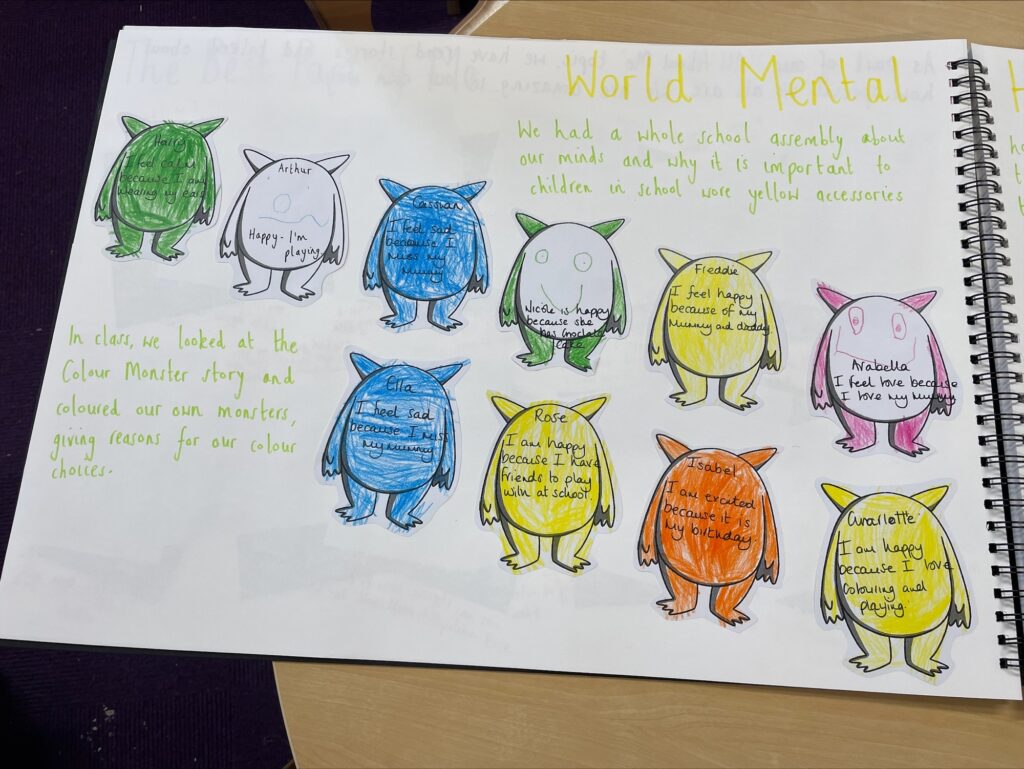 World Mental
We had a whole school assembly about
our minds and why it is important to
children in school wore yellow accessories
Harry
I feel calm
because I am
wearing my ears
Arthur
Happy - I'm
playing
Cassian
I feel sad
because I
miss my
Mummy
Nicole is happy
because she
has chocolate
cake
Freddie
I feel happy
because of my
Mummy and daddy.
Arabella
I feel love because
I love my Mummy
In class, we looked at the
Colour Monster story and
coloured our own monsters,
giving reasons for our colour
choices.
Ella
I feel sad
because I miss
my Mummy
Rose
I am happy
because I have
friends to play
with at school.
Isabel
I am excited
because it is
my birthday
Charlotte
I am happy
because I love
colouring and
playing.